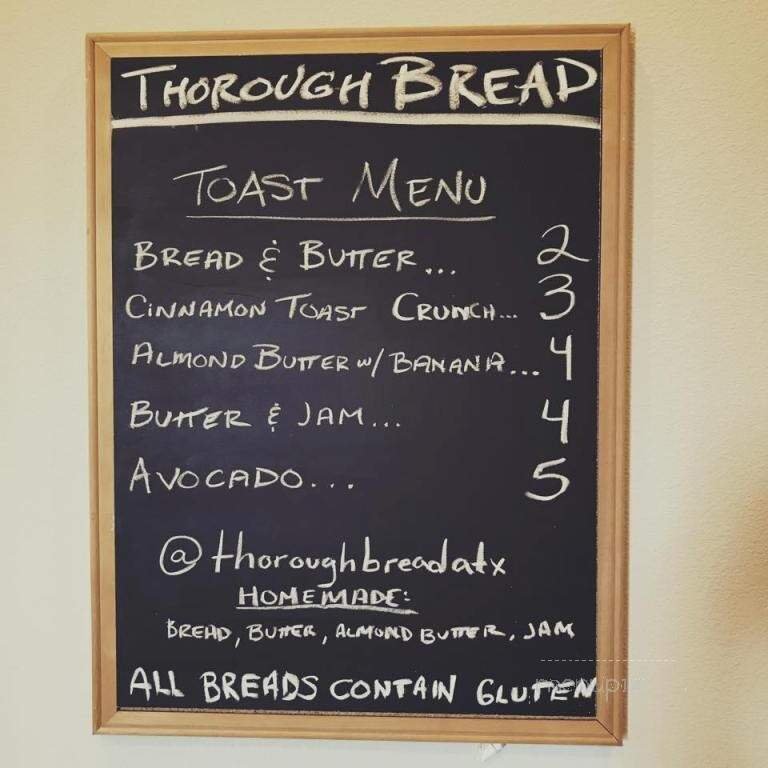 THOROUGH BREAD
TOAST MENU
BREAD & BUTTER... 2
CINNAMON TOAST CRUNCH... 3
ALMOND BUTTER W/ BANANA... 4
BUTTER & JAM... 4
AVOCADO... 5
@thoroughbreadatx
HOMEMADE:
BREAD, BUTTER, ALMOND BUTTER, JAM
ALL BREADS CONTAIN GLUTEN